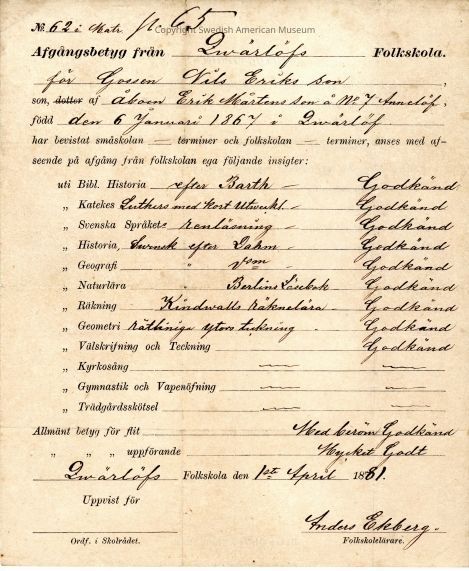 № 62 i Matr. 65
Copyright Swedish American Museum
Afgångsbetyg från Qwärlöfs Folkskola.
för Gossen Nils Eriks son
son, dotter af Åboen Erik Mårtens son å № 7 Annelöf,
född den 6 Januari 1867 i Qwärlöf
har bevistat småskolan — terminer och folkskolan — terminer, anses med af-
seende på afgång från folkskolan ega följande insigter:
uti Bibl. Historia — efter Barth — Godkänd
„ Katekes Luthers med kort Utveckl. — Godkänd
„ Svenska Språket renläsning — Godkänd
„ Historia, Swensk efter Dahm — Godkänd
„ Geografi „ Dsm — Godkänd
„ Naturlära „ Berlins Läsebok — Godkänd
„ Räkning Kindwalls räknelära — Godkänd
„ Geometri rätliniga ytors teckning . Godkänd
„ Välskrifning och Teckning Godkänd
„ Kyrkosång — —
„ Gymnastik och Vapenöfning — —
„ Trädgårdsskötsel — —
Allmänt betyg för flit Med beröm Godkänd
„ „ „ uppförande Mycket Godt
Qwärlöfs Folkskola den 1st April 1881.
Uppvist för
Anders Ekberg.
Ordf. i Skolrådet. Folkskolelärare.